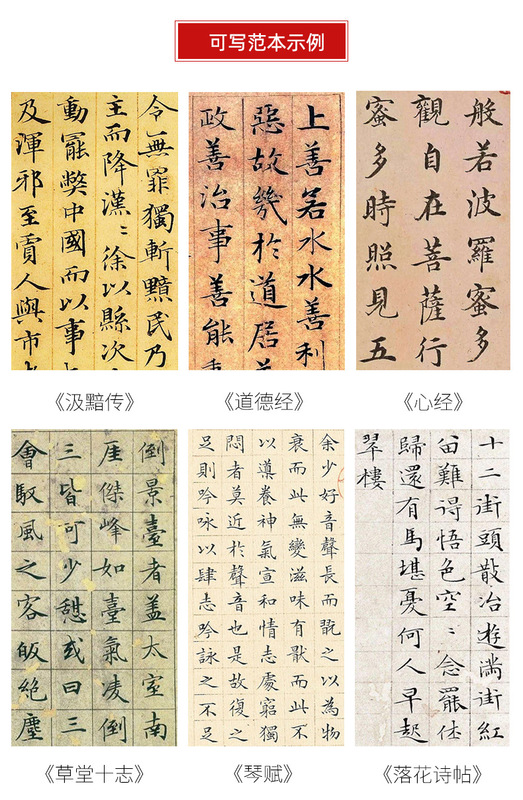 可写范本示例
令無罪獨斬黯民乃
主而降漢〻徐以縣次
動罷獘中國而以事
及渾邪至賈人與市
《汲黯传》
上善若水水善利
惡故幾於道居
政善治事善能
《道德经》
般若波羅蜜多
觀自在菩薩行
蜜多時照見五
《心经》
倒景臺者蓋太室南
厓傑峰如臺氣凌倒
三皆可少憇或曰三
會馭風之客皈絶塵
《草堂十志》
余少好音聲長而翫之以為物
衰而此無變滋味有猒而此不
以導養神氣宣和情志處窮獨
悶者莫近於聲音也是故復之
足則吟咏以肆志吟詠之不足
《琴赋》
十二街頭散冶遊滿街紅
畄難得悟色空〻念罷休
歸還有馬堪憂何人早起
翠樓
《落花诗帖》